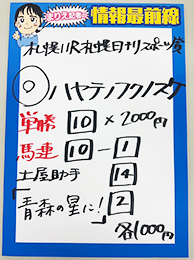 まりえ記者
情報最前線
札幌11R札幌日刊スポーツ賞
◎ハヤテノフクノスケ
単勝 10 × 2000円
馬連 10 - 1
土屋助手 14
「青森の星に!」 2
各1000円